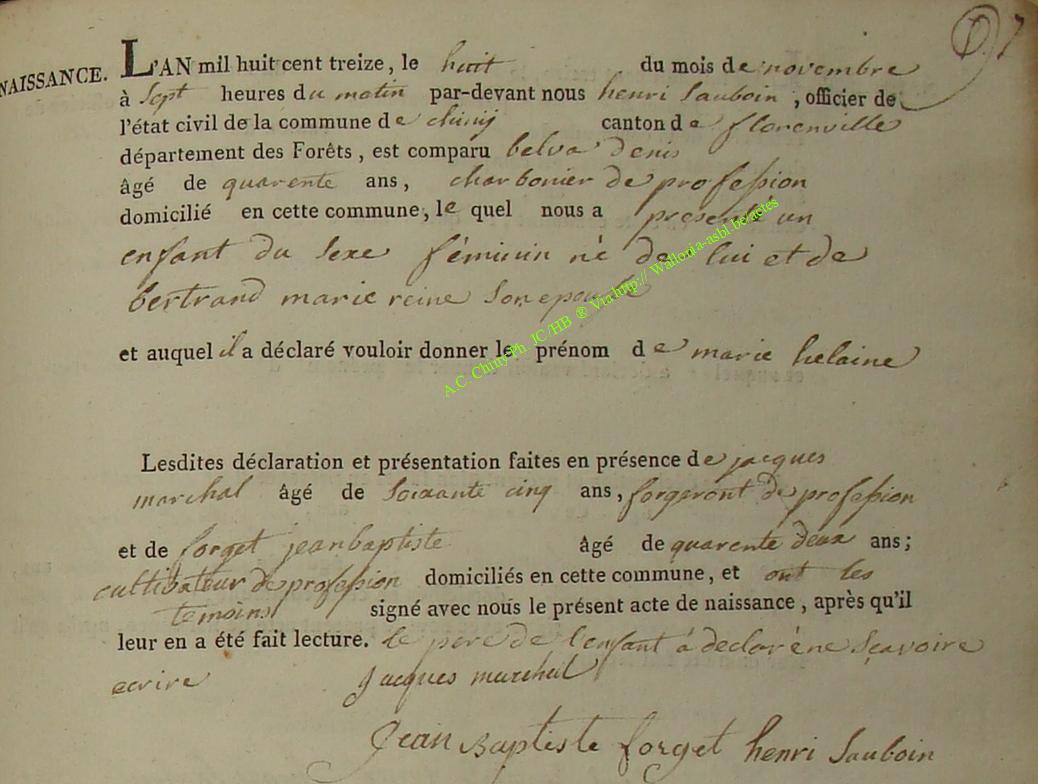 NAISSANCE.
L'AN mil huit cent treize, le huit du mois de novembre
à Sept heures du matin par-devant nous henri Sauboin, officier de
l'état civil de la commune de chiny canton de florenville
département des Forêts, est comparu belva denis
âgé de quarente ans, charbonier de profession
domicilié en cette commune, le quel nous a presenté un
enfant du sexe féminin né de lui et de
bertrand marie reine son epouse
et auquel il a déclaré vouloir donner le prénom de marie helaine
Lesdites déclaration et présentation faites en présence de jacques
marchal âgé de soixante cinq ans, forgeront de profession
et de forget jean baptiste âgé de quarente deux ans;
cultivateur de profession domiciliés en cette commune, et ont les
temoins signé avec nous le présent acte de naissance, après qu'il
leur en a été fait lecture. le pere de l'enfant à déclaré ne sçavoire
ecrire Jacques marchal
Jean Baptiste forget henri Sauboin
A.C. Chiny Ph. JC/HB ® Via http://Wallonia-asbl.be/actes